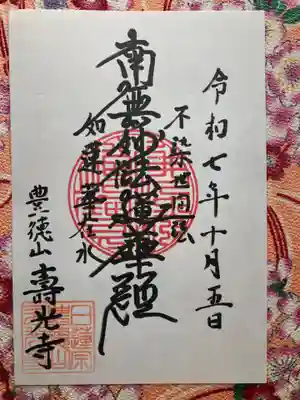 令和七年十月五日
不染世間法
南無妙法蓮華経
如蓮華在水
豊徳山 壽光寺